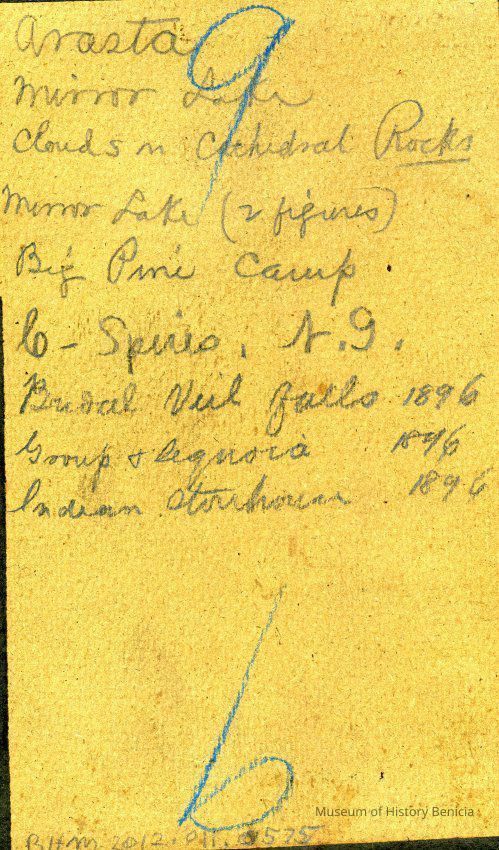 Arasta
9
Mirror Lake
Clouds n Cathedral Rocks
Mirror Lake (2 figures)
Big Pine Camp.
C - Spires, N.G.
Bridal Veil falls 1896
Group & Sequoia 1896
Indian Storehouse 1896
6
Museum of History Benicia
BHM 2012.011.0575